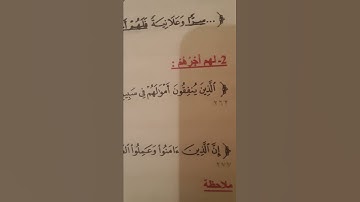 ﴿ ...سِرًّا وَعَلَانِيَةً فَلَهُمْ
2- لهم أجرهم :
﴿ ٱلَّذِينَ يُنفِقُونَ أَمْوَٰلَهُمْ فِى
٢٦٢
﴿ إِنَّ ٱلَّذِينَ ءَامَنُوا۟ وَعَمِلُوا۟
٢٧٧
ملاحظة